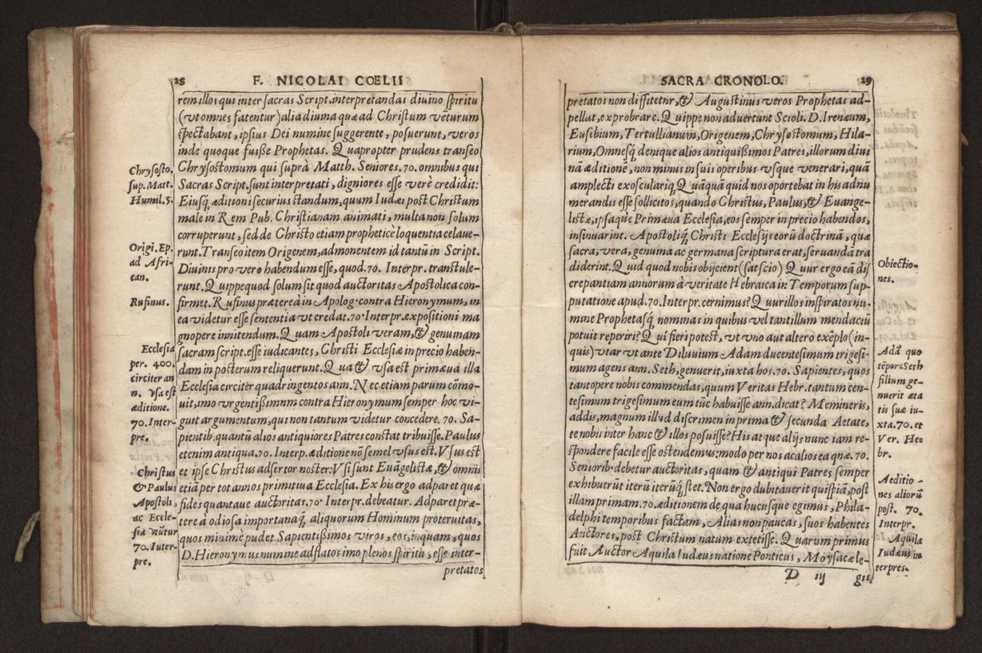 28 F. NICOLAI COELII
rem illos qui inter sacras Script. interpretandas diuino spiritu
(vt omnes fatentur) alia diuma quæ ad Christum veturum
spectabant, ipsius Dei numine suggerente, posuerunt, veros
inde quoque fuisse Prophetas. Quapropter prudens transeo
Chrysostomum qui suprà Matth. Seniores .70. omnibus qui
Sacras Script. sunt interpretati, digniores esse verè credidit:
Eiusq́ æditioni securius standum, quum Iudæi post Christum
male in Rem Pub. Christianam animati, multa non solum
corruperunt, sed de Christo etiam propheticè loquentia celaue-
runt. Transeo item Origenem, admonentem id tantũ in Script.
Diuinis pro vero habendum esse, quod .70. Interpr. transtule-
runt. Quippe quod solum sit quod auctoritas Apostolica con-
firmet. Rufinus præterea in Apolog. contra Hieronymum, in
ea videtur esse sententia vt credat .70. Interpr. expositioni ma
gnopere innitendum. Quam Apostoli veram, & genuinam
sacram script. esse iudicantes, Christi Ecclesiæ in precio haben-
dam in posterum reliquerunt. Qua & vsa est primæua illa
Ecclesia circiter quadringentos ann. Nec etiam parum cõmo-
uit, imo vrgentissimum contra Hieronymum semper hoc vi-
guit argumentum, qui non tantum videtur concedere .70. Sa-
pientib. quantũ alios antiquiores Patres constat tribuisse. Paulus
etenim antiqua .70. Interp. æditione nõ semel vsus est. Vsus est
et ipse Christus adsertor noster: Vsi sunt Euãgelistæ, & omnis
etiã per tot annos primitiua Ecclesia. Ex his ergo adparet quæ
fides quantaue auctoritat .70. Interpr. debeatur. Adparet præ-
tereà odiosa importunaq́, aliquorum Hominum proteruitas,
quos minimè pudet Sapientissimos viros, eos, inquam, quos
D. Hieronymus numine adflatos imo plenos spiritu, esse inter-
pretatos
Chrysosto.
sup. Matt.
Humil. 5.
Origi. Ep.
ad Afri-
can.
Rufinus.
Ecclesia
per. 400.
circiter an
n. vsa est
æditione.
70. Inter-
pre.
Christus
& Paulus
Apostoli,
ac Eccle-
sia vtũtur
70. Inter-
pre.
SACRA CRONOLO. 29
pretatos non diffitetur, & Augustinus veros Prophetas ad-
pellat, exprobrare. Quippe non aduertunt Scioli. D. Irenæum,
Eusibium, Tertullianum, Origenem, Chrysostomum, Hila-
rium, Omnesq́ denique alios antiquissimos Patres, illorum diui
nã æditionẽ, non minus in suis operibus vsque venerari, quã
amplecti exosculariq́. Quãquã quid nos oportebat in his adnu
merandis esse sollicitos, quando Christus, Paulus, & Euange-
listæ, ipsaque Primæua Ecclesia, eos semper in precio habendos,
insinuarint. Apostoliq́ Christi Ecclesijs eorũ doctrinã, quæ
sacra, vera, genuina ac germana scriptura erat, seruanda tra
diderint. Quid quod nobis obijcient (sat scio) Quur ergo eã dis
crepantiam annorum à veritate Hebraica in Temporum sup-
putatione apud .70. Interpr. cernimus? Quur illos inspiratos nu-
mine Prophetasq́ nominas in quibus vel tantillum mendaciũ
potuit reperiri? Qui fieri potest, vt vno aut altero exẽplo (in-
quis) vtar vt ante Diluuium Adam ducentesimum trigesi-
mum agens ann. Seth, genuerit, iuxta hos .70. Sapientes, quos
tantopere nobis commendas, quum Veritas Hebr. tantum cen-
tesimum trigesimum eum tũc habuisse ann. dicat? Memineris,
addis, magnum illud discrimen in prima & secunda Aetate,
te nobis inter hanc & illos posuisse? His atque alijs nunc iam re-
spondere facile esse ostendemus: modo per nos acasios ea quæ .70.
Seniorib. debetur auctoritas, quam & antiqui Patres semper
exhibuerũt iterũ iterũq́ stet. Non ergo dubitauerit quispiã, post
illam primam .70. æditionem de qua hucusque egimus, Phila-
delphi temporibus factam, Alias non paucas, suos habentes
Auctores, post Christum natum extetisse. Quarum primus
fuit Auctor Aquila Iudæus natione Ponticus, Moysacæ le-
D iij gis
Obiectio-
nes.
Adã quo
tẽpore Seth
filium ge-
nuerit æta
tis suæ iu-
xta .70. et
Ver. He
br.
Aeditio-
nes aliorũ
post. 70.
Interpr.
Aquila
Iudæus in
terpres.